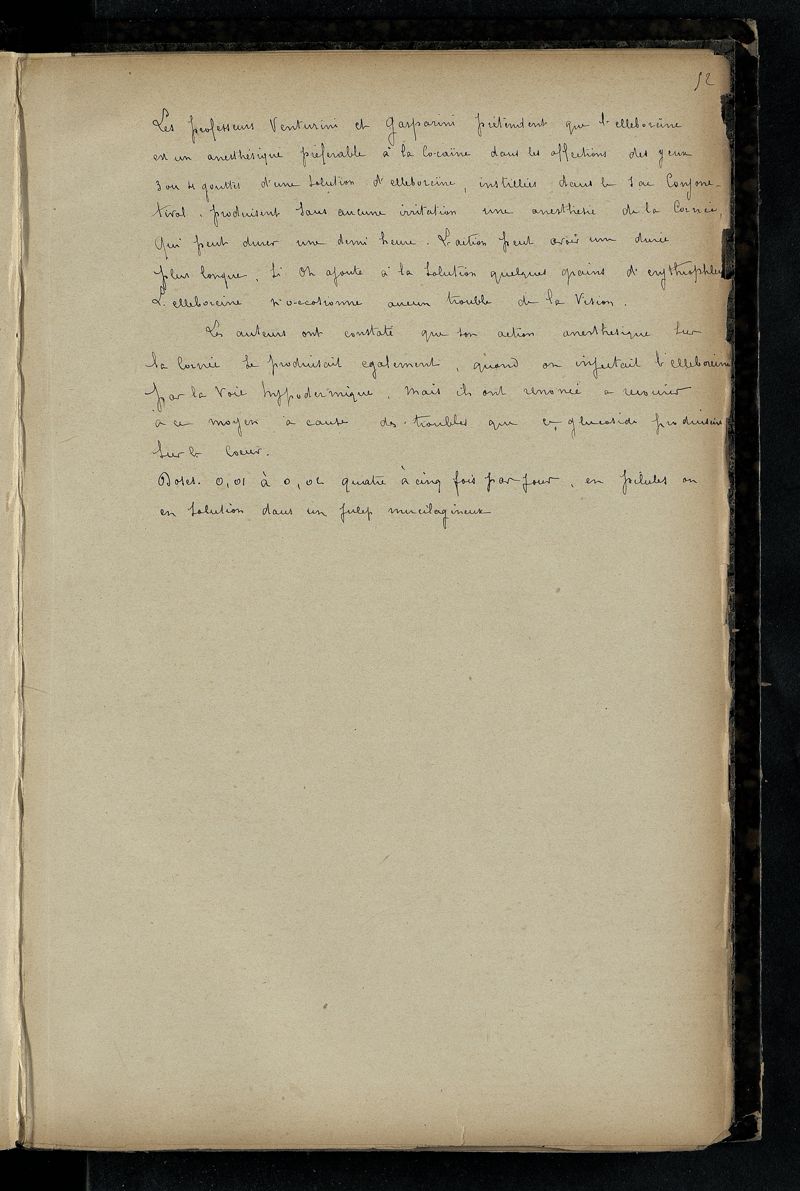 52
Les professeurs Venturini et Gasparini prétendent que l'elleboreïne
est un anesthésique préferable à la Cocaïne dans les affections des yeux
3 ou 4 gouttes d'une solution d'elleboreine, instillées dans le sac Conjonc-
tival, produisent sans aucune irritation une anesthesie de la Cornée,
qui peut durer une demi heure. L'action peut avoir une durée
plus longue, si on ajoute à la solution quelques grains d'erythrophlein
L'elleboreine n'occasionne aucun trouble de la Vision.
Les auteurs ont constaté que son action anesthésique sur
la Cornée se produisait egalement, quand on injectait l'elleboreine
par la voie hypodermique, mais ils ont renoncé a recourir
à ce moyen à cause des troubles que ce glucoside produisait
sur le Coeur.
Doses. 0,01 à 0,02 quatre à cinq fois par jour, en pilules ou
en solution dans un julep mucilagineux